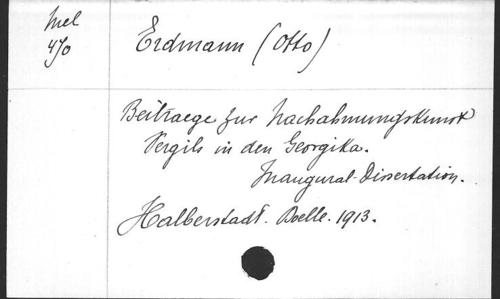 Mel
4/0
Erdmann (Otto)
Beitraege zur Nachahmungskunst
Vergils in den Georgika.
Inaugural-Dissertation.
Halberstadt. Doelle. 1913.